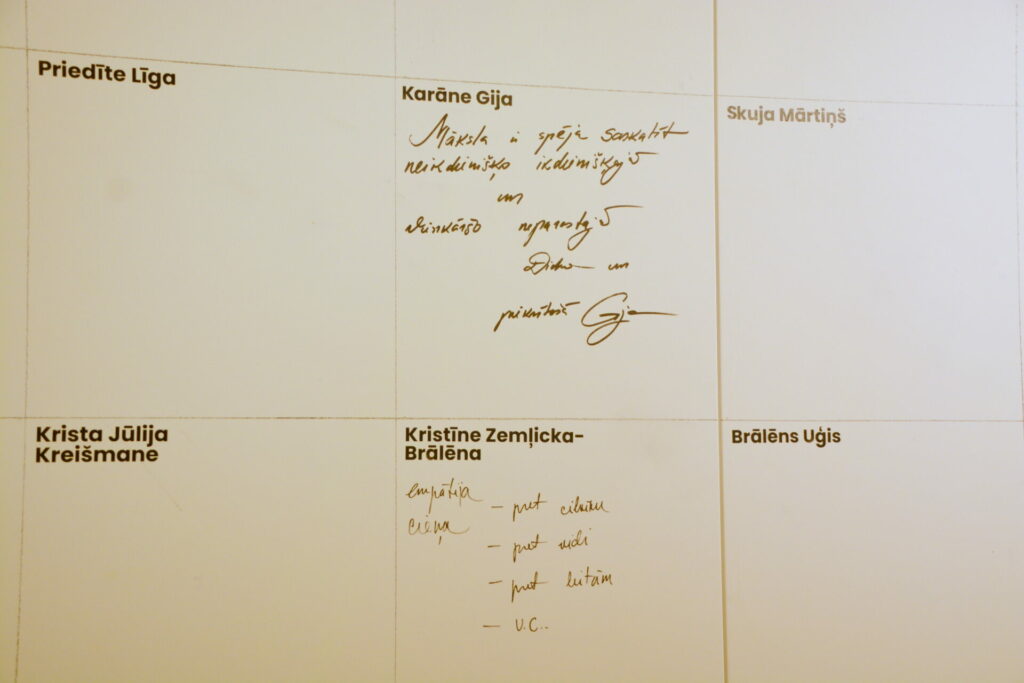 Priedīte Līga
Karāne Gija
Māksla ir spēja saskatīt
neikdienišķo ikdienišķajā
un
vienkāršo neparastajā
un
Gija
Skuja Mārtiņš
Krista Jūlija
Kreišmane
Kristīne Zemļicka-
Brālēna
empātija
cieņa
– pret cilvēku
– pret vidi
– pret lietām
– U.C..
Brālēns Uģis